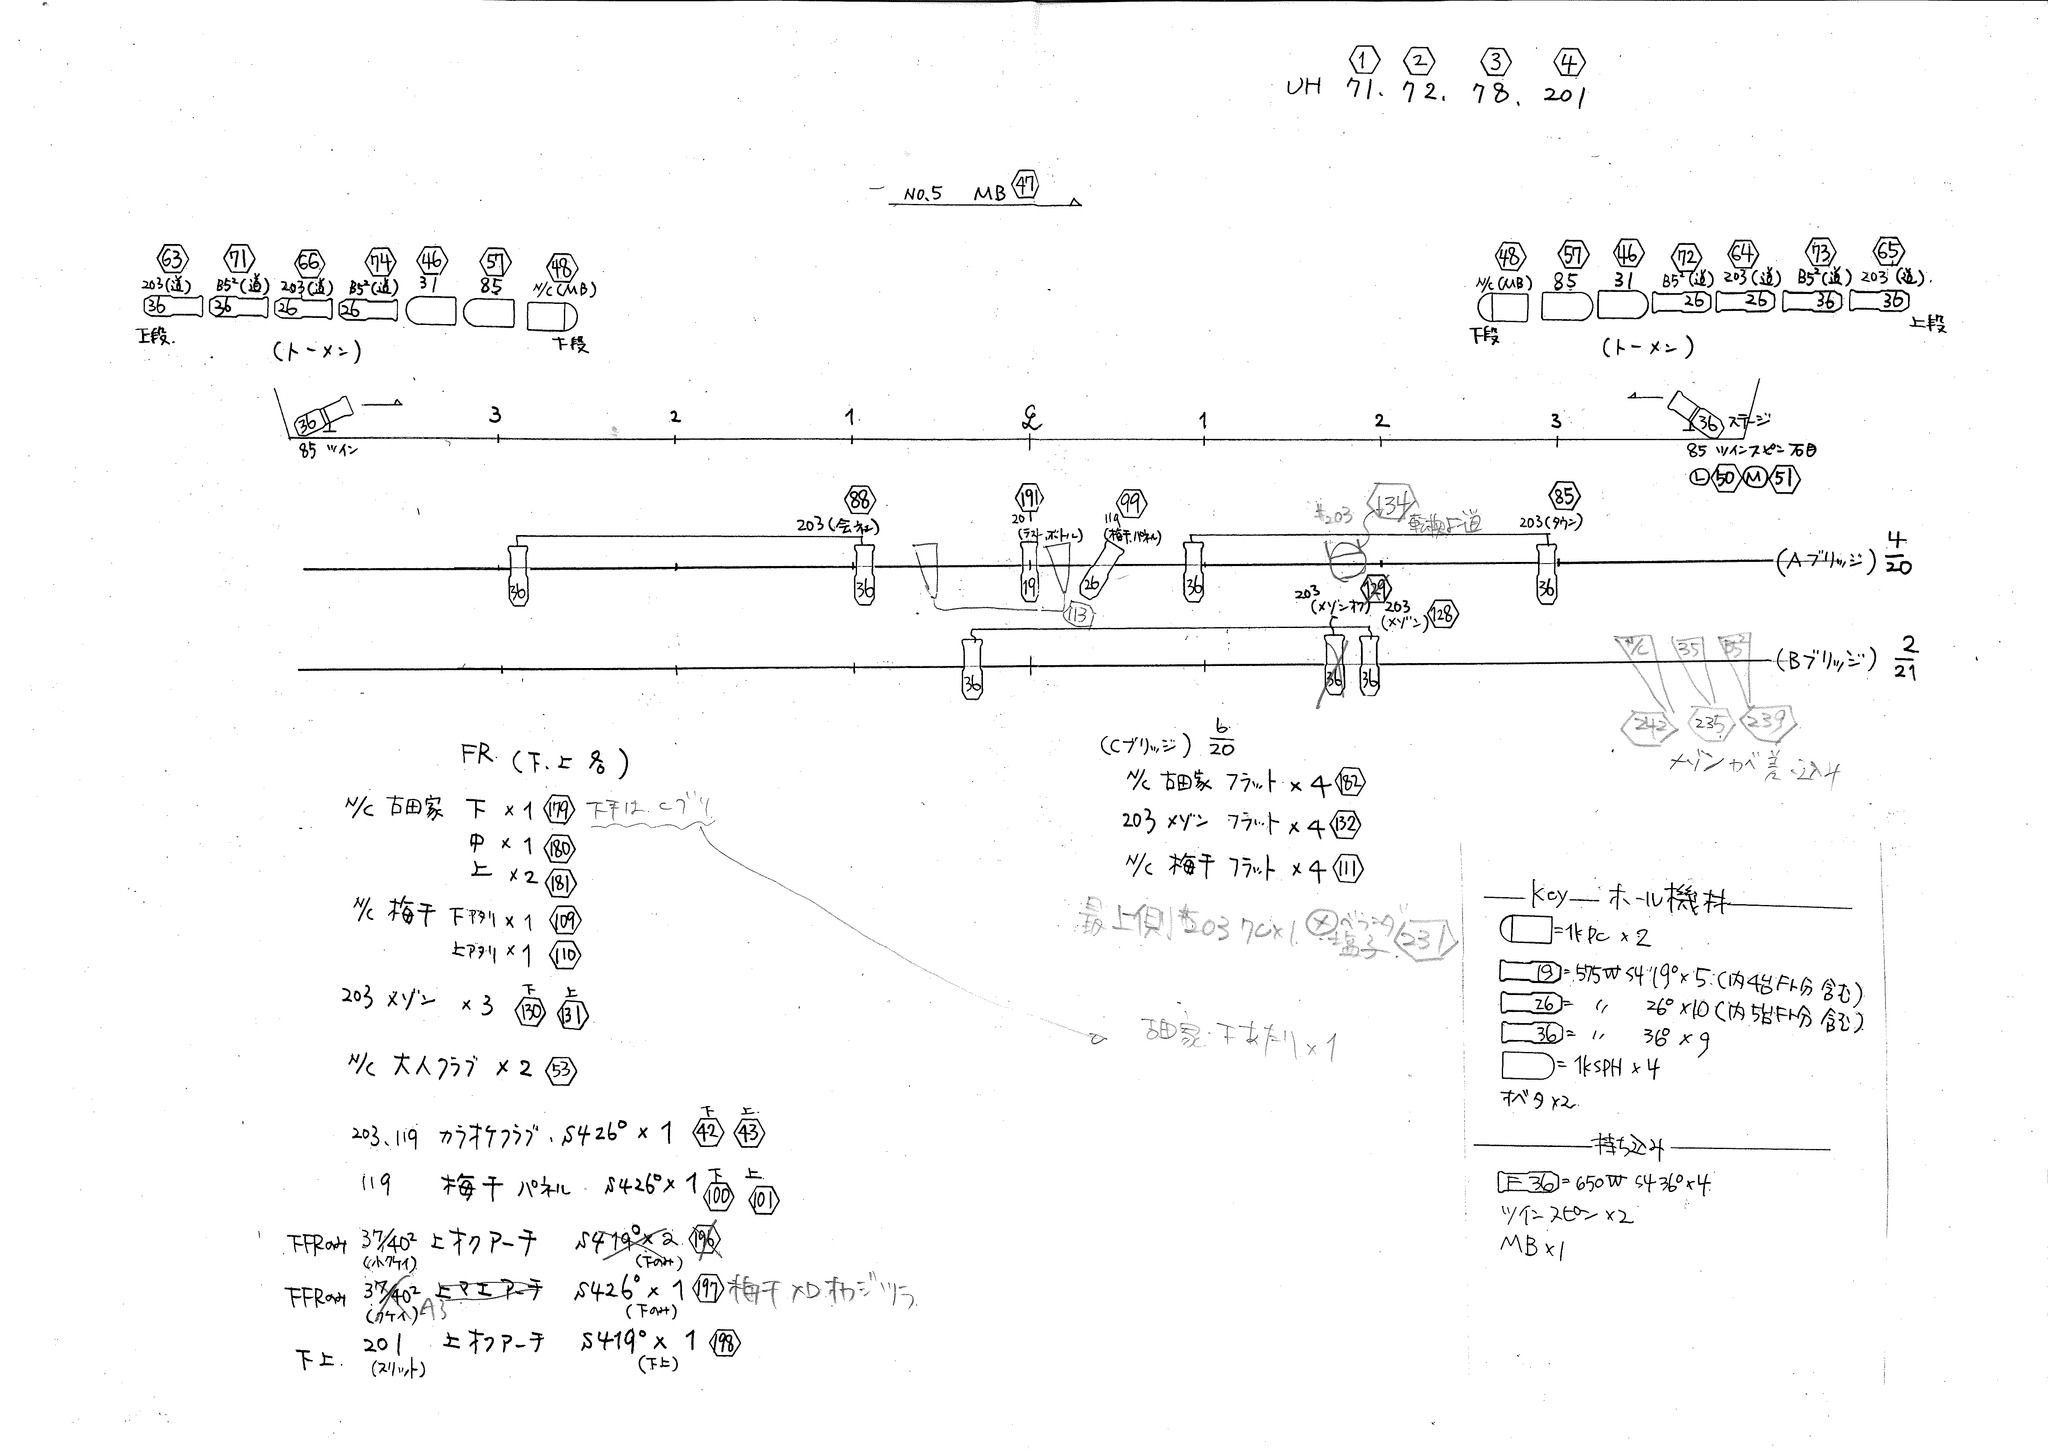 1 2 3 4
UH 71. 72. 78. 201
NO.5 MB 47
63 71 66 74 46 57 48
203(道) B5²(道) 203(道) B5²(道) 31 85 N/C(MB)
36 36 26 26
上段. 下段
(トーメン)
48 57 46 72 64 73 65
N/C(MB) 85 31 B5²(道) 203(道) B5²(道) 203(道)
26 26 36 36
下段 上段
(トーメン)
36 3 2 1 ℄ 1 2 3 36 ステージ
85 ツイン
85 ツインスピン
L 50 M 51
88 191 99 134 85
203 201 119 #203 転換 道 203(タウン)
(梅干パネル)
36 36 19 26 36 36
(Aブリッジ) 4/20
113
203 (メゾンオフ) 129 203 (メゾン) 128
36 36 36
N/C 35 B5²
(Bブリッジ) 2/21
242 235 239
メゾンカベ差し込み
FR (下.上 各)
N/C 古田家 下 × 1 179 下手は Cブリ
中 × 1 180
上 × 2 181
N/C 梅干 下アタリ × 1 109
上アタリ × 1 110
203 メゾン × 3 下 130 上 131
N/C 大人クラブ × 2 53
203.119 カラオケクラブ. S426° × 1 下 42 上 43
119 梅干 パネル S426° × 1 下 100 上 101
下FRのみ 37/40² 上オクアーチ S419° × 2 196
(下のみ)
下FRのみ 37/40² 上マエアーチ S426° × 1 197 梅干
(カケイ) A3 (下のみ)
下上. 201 上オクアーチ S419° × 1 198
(スリット) (下上)
(Cブリッジ) 6/20
N/C 古田家 フラット × 4 182
203 メゾン フラット × 4 132
N/C 梅干 フラット × 4 111
最上側 #203 7C×1 ベランダ 塩子 231
古田家 下あたり × 1
Key ホール機材
=1kPC × 2
19 =575W S4 19° × 5 (内4台FR分含む)
26 = 〃 26° × 10 (内5台FR分含む)
36 = 〃 36° × 9
=1kSPH × 4
オベタ×2
持ち込み
E 36 =650W S4 36°×4
ツインスピン×2
MB×1